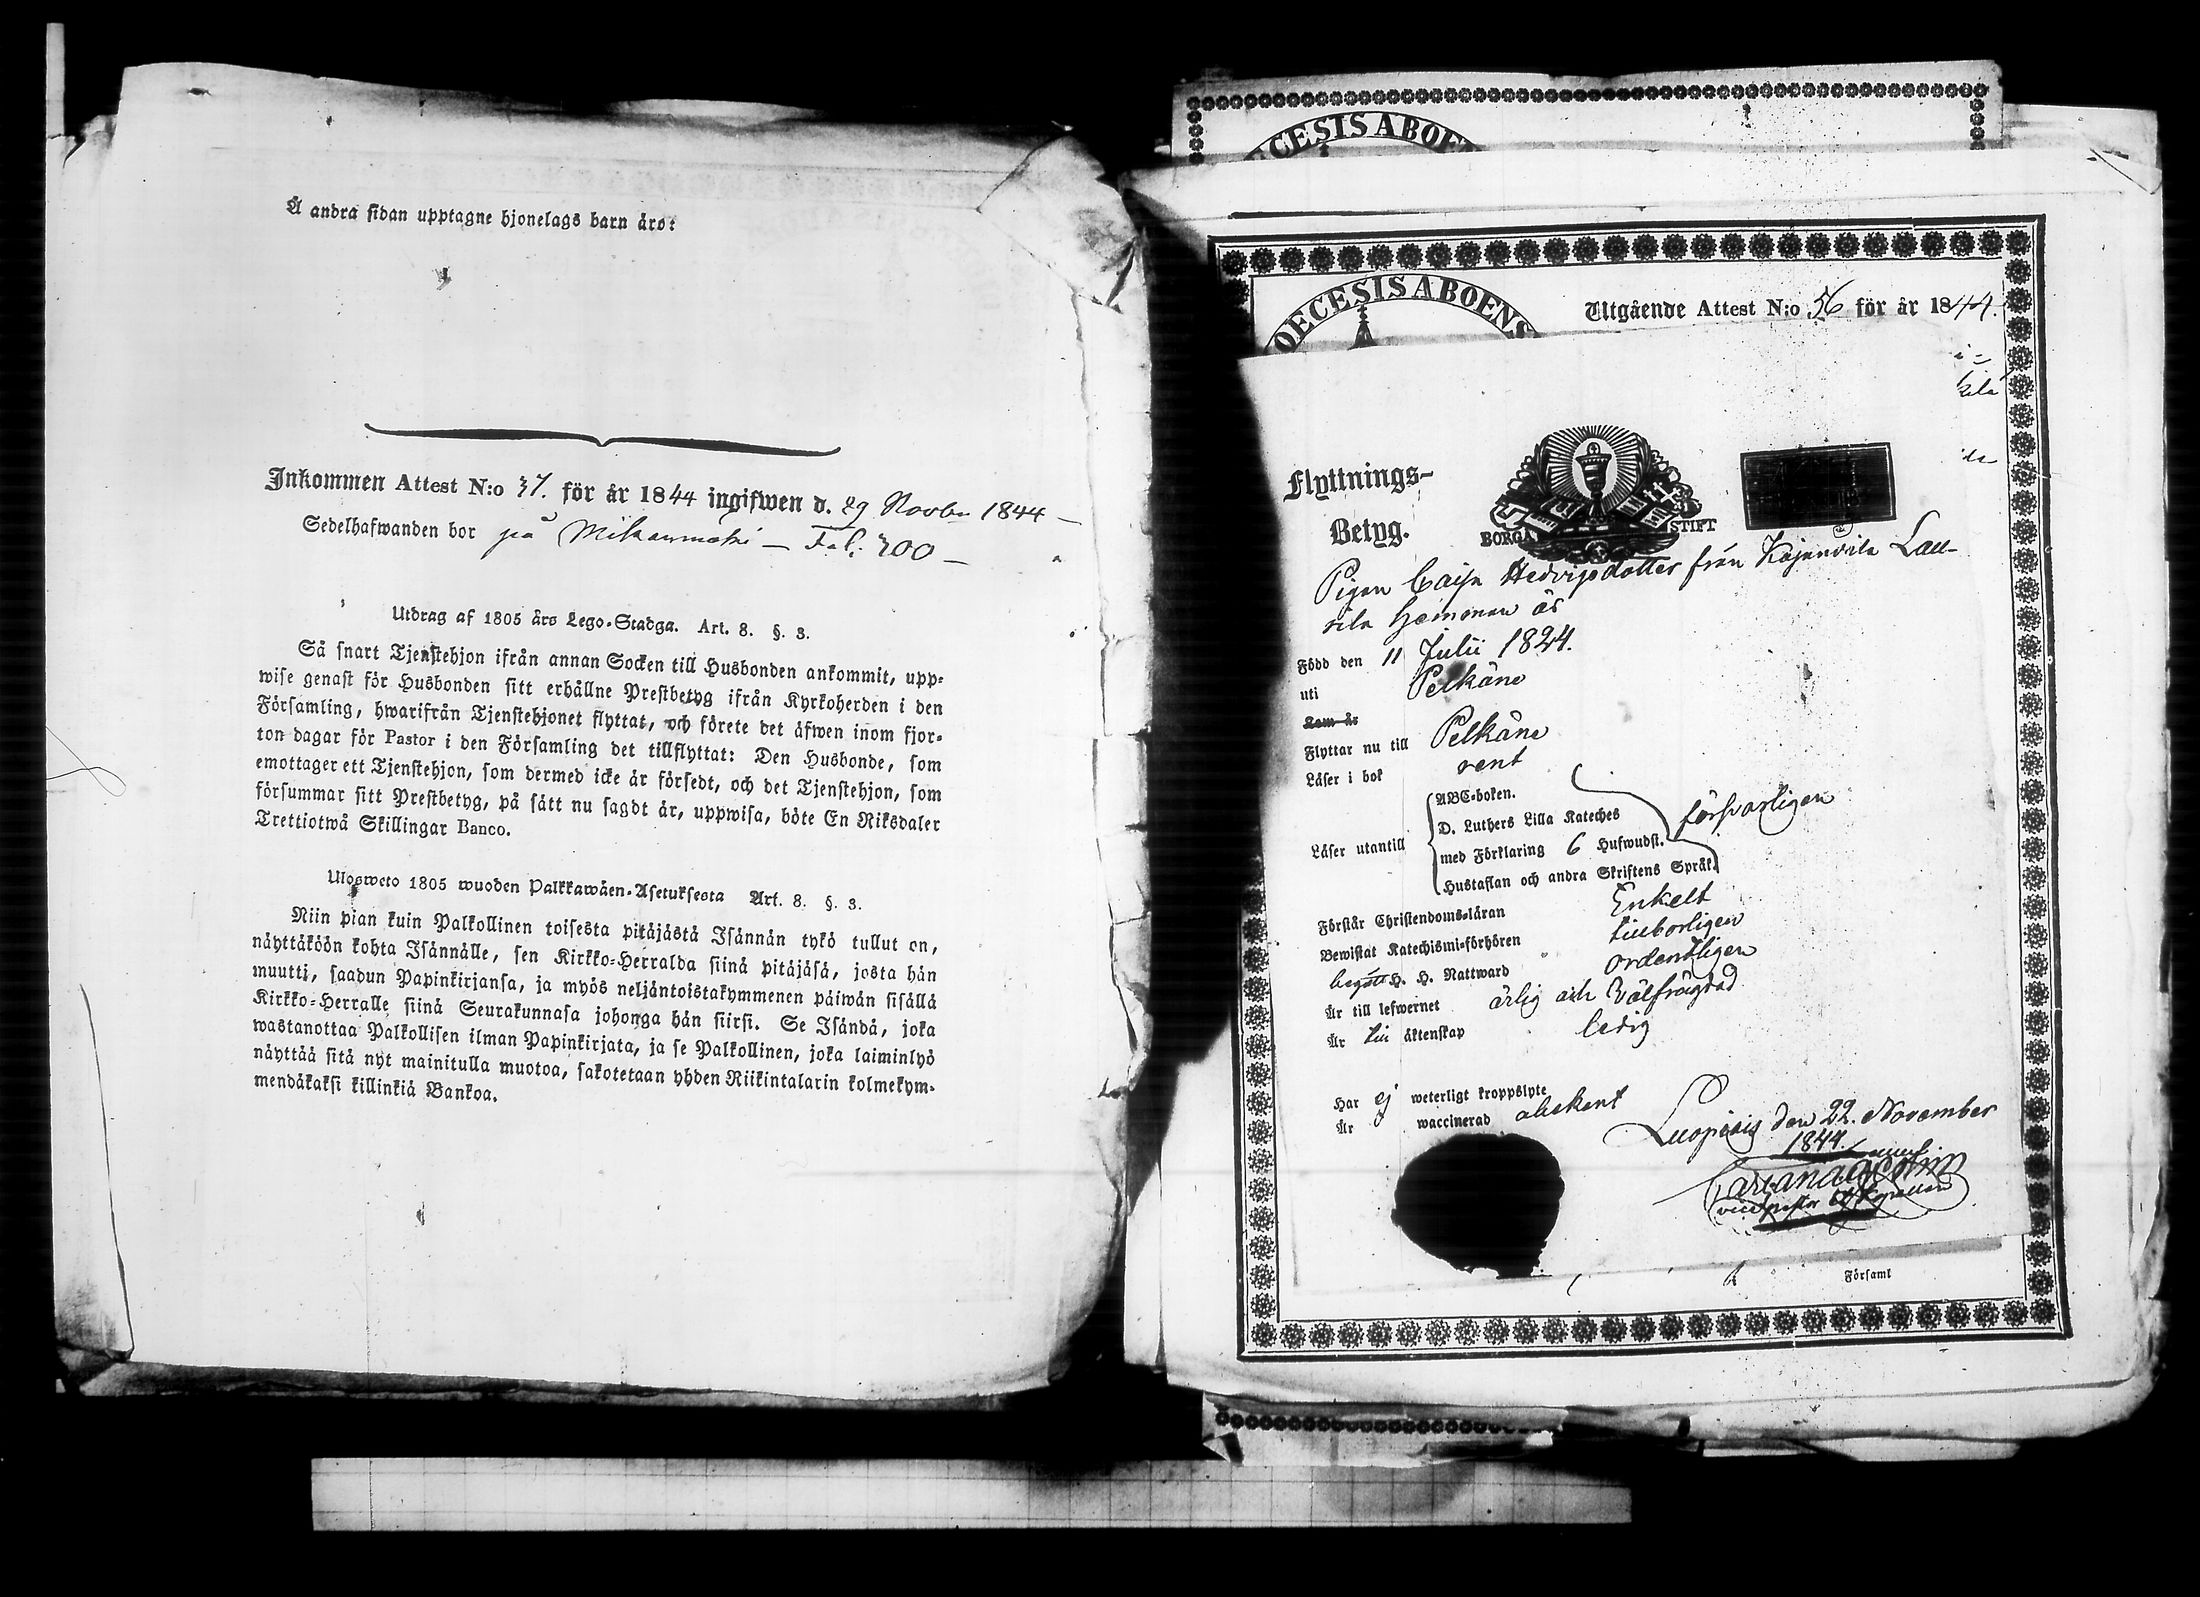 Å andra sidan upptagne hjonelags barn äro:
Inkommen Attest N:o 37. för år 1844 ingifwen d. 29 Novbr 1844 —
Sedelhafwanden bor på — Fol. 200 —
Utdrag af 1805 års Lego-Stadga. Art. 8. §. 3.
Så snart Tjenstehjon ifrån annan Socken till Husbonden ankommit, upp-
wise genast för Husbonden sitt erhållne Prestbetyg ifrån Kyrkoherden i den
Församling, hwarifrån Tjenstehjonet flyttat, och förete det äfwen inom fjor-
ton dagar för Pastor i den Församling det tillflyttat: Den Husbonde, som
emottager ett Tjenstehjon, som dermed icke är försedt, och det Tjenstehjon, som
försummar sitt Prestbetyg, på sätt nu sagdt är, uppwisa, böte En Riksdaler
Trettiotwå Skillingar Banco.
Ulosweto 1805 wuoden Palkkawäen-Asetuksesta Art. 8. §. 3.
Niin pian kuin Palkollinen toisesta pitäjästä Isännän tykö tullut on,
näyttäköön kohta Isännälle, sen Kirkko-Herralda siinä pitäjäsä, josta hän
muutti, saadun Papinkirjansa, ja myös neljäntoistakymmenen päiwän sisällä
Kirkko-Herralle siinä Seurakunnasa johonga hän siirsi. Se Isändä, joka
wastanottaa Palkollisen ilman Papinkirjata, ja se Palkollinen, joka laiminlyö
näyttää sitä nyt mainitulla muotoa, sakotetaan yhden Riikintalarin kolmekym-
mendäkaksi killinkiä Bankoa.
ECESIS ABOEN
OECESIS ABOENS
Utgående Attest N:o 56 för år 1844.
Flyttnings-
Betyg.
BORGÅ STIFT
Pigan Caisa Hedvigsdotter från Kajanvila Lau-
rila hemman är
Född den 11 Julii 1824.
uti Pelkäne
Kom år
Flyttar nu till Pelkäne
Läser i bok rent
ABC-boken.
D. Luthers Lilla Kateches
Läser utantill med Förklaring 6 Hufwudst. försvarligen
Hustaflan och andra Skriftens Språk.
Förstår Christendoms-läran Enkelt
Bewistat Katechismi-förhören tillbörligen
begått H. H. Nattward ordentligen
Är till lefwernet ärlig och Välfrägdad
Är till äktenskap ledig
Har ej weterligt kroppslyte
Är waccinerad obekant
Luopiois den 22. November
1844.
Församl